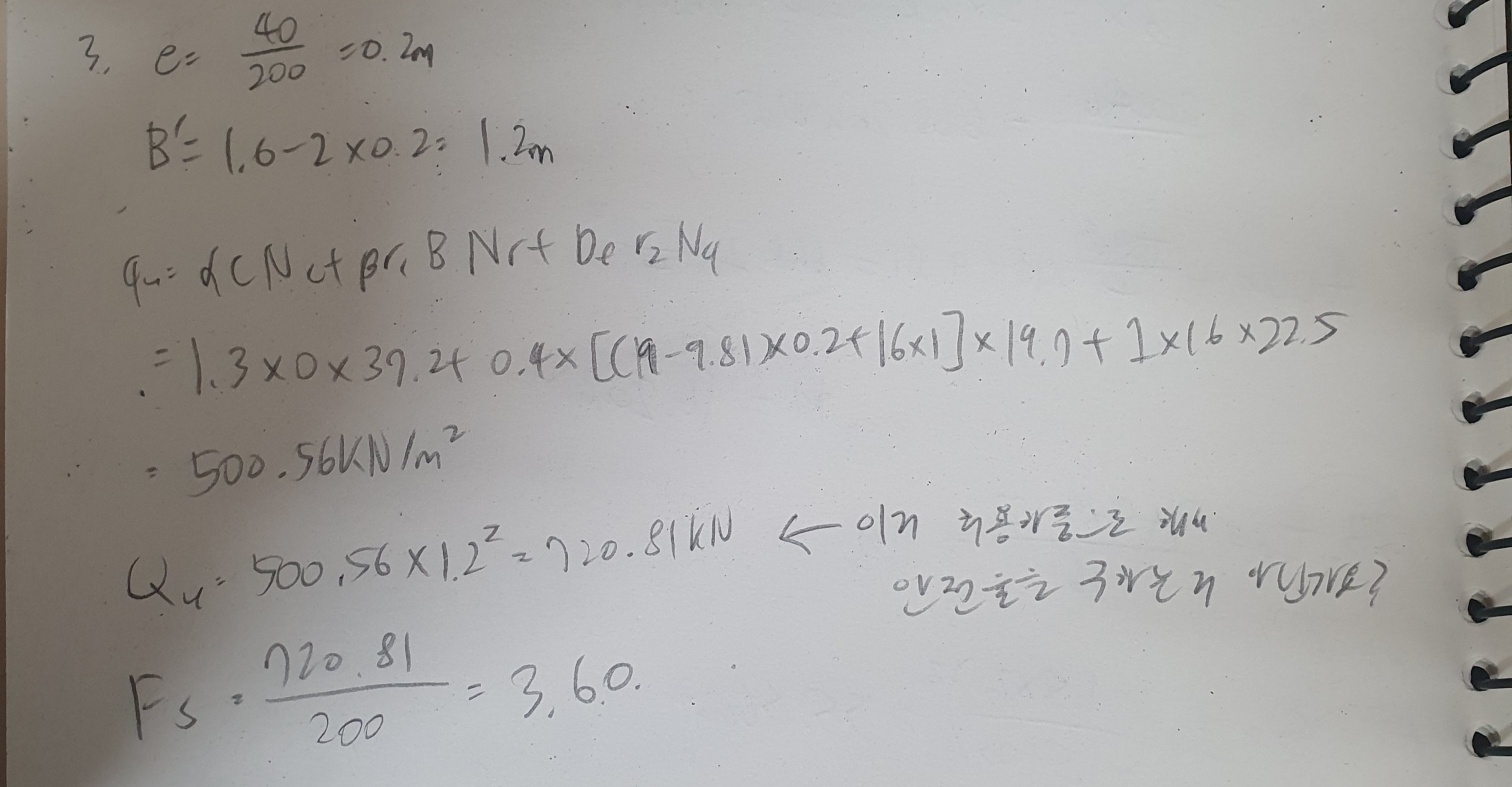 3. e= 40/200 =0.2m
B'= 1.6-2×0.2= 1.2m
qu= αCNc+ βr₁BNr+ Df r₂Nq
= 1.3×0×37.2+ 0.4×[(19-9.81)×0.2+16×1]×19.7+ 1×16×22.5
= 500.56KN/m²
Qu= 500.56×1.2²=720.81kN ← 이거 허용하중으로 해서
안전율을 구하는거 아닌가요?
Fs= 720.81/200 = 3.60.